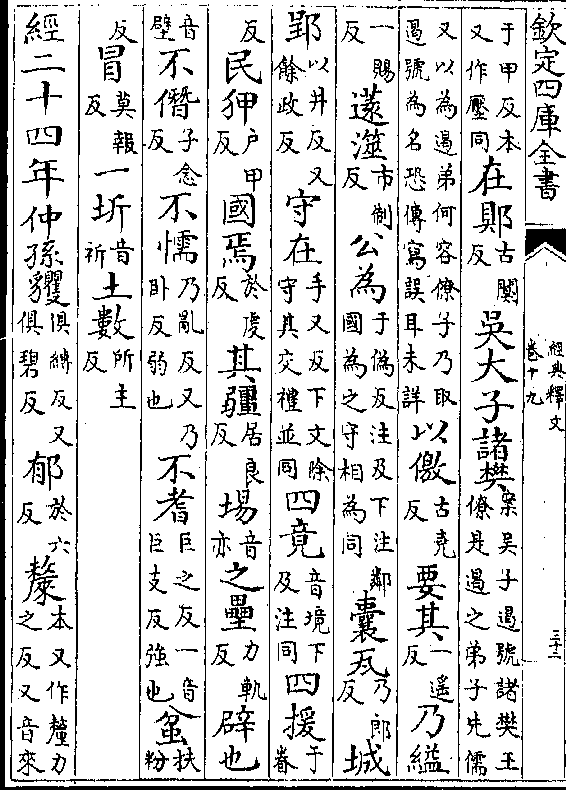 欽定四庫全書
經典釋文
卷十九
三十二
于甲反本又作壓同在郹古闃反吳大子諸樊案吳子遏號諸樊王僚是遏之弟子先儒
又以為遏弟何容僚子乃取遏號為名恐傳寫誤耳未詳以儌古堯反要其一遥反乃縊
一賜反薳澨市制反公為于偽反注及下注鄰國為之守相為同囊瓦乃郎反城
郢以井反又餘政反守在手又反下文除守其交禮並同四竟音境下及注同四援于眷
反民狎户甲反國焉於虔反其疆居良反埸音亦之壘力軌反辟也
音壁不僭子念反不懦乃亂反又乃卧反弱也不耆巨之反一音巨支反強也蚠扶粉
反冒莫報反一圻音祈土數所主反
經二十四年仲孫貜俱縛反又俱碧反郁於六反斄本又作釐力之反又音來